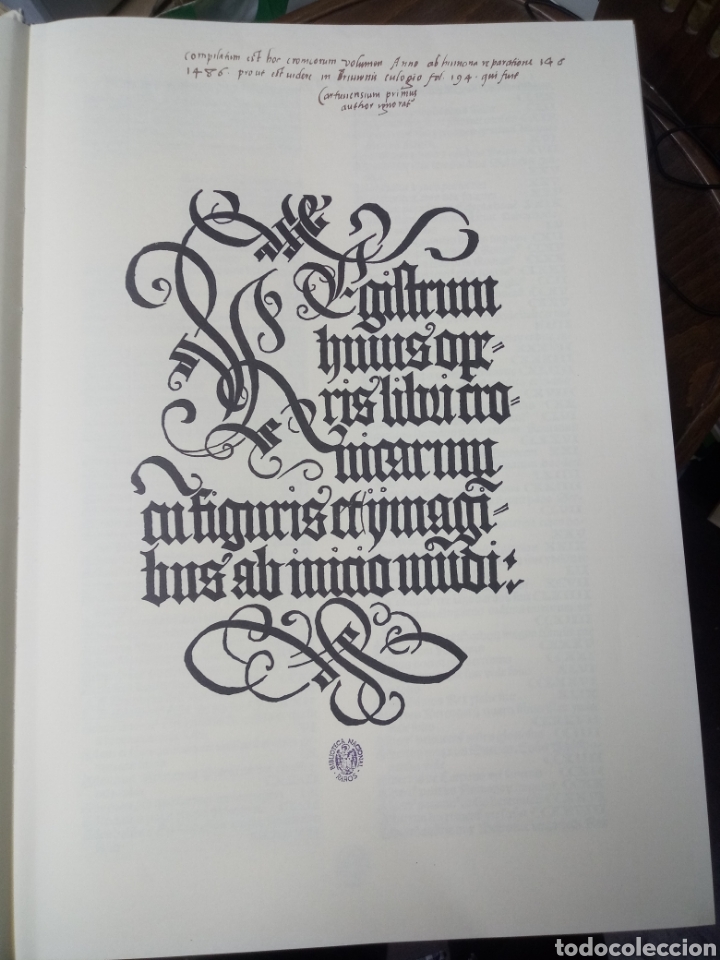 compilatum est hoc cronicarum volumen Anno ab humane reparatione 146
1486. prout est videre in eulogio fol. 194. qui fuit
Cartusiensium primus
author
REgistrum
huius ope=
ris libri cro=
nicarum
cū figuris et ymagī=
bus ab inicio mūdi:
BIBLIOTECA NACIONAL
RAROS
todocoleccion